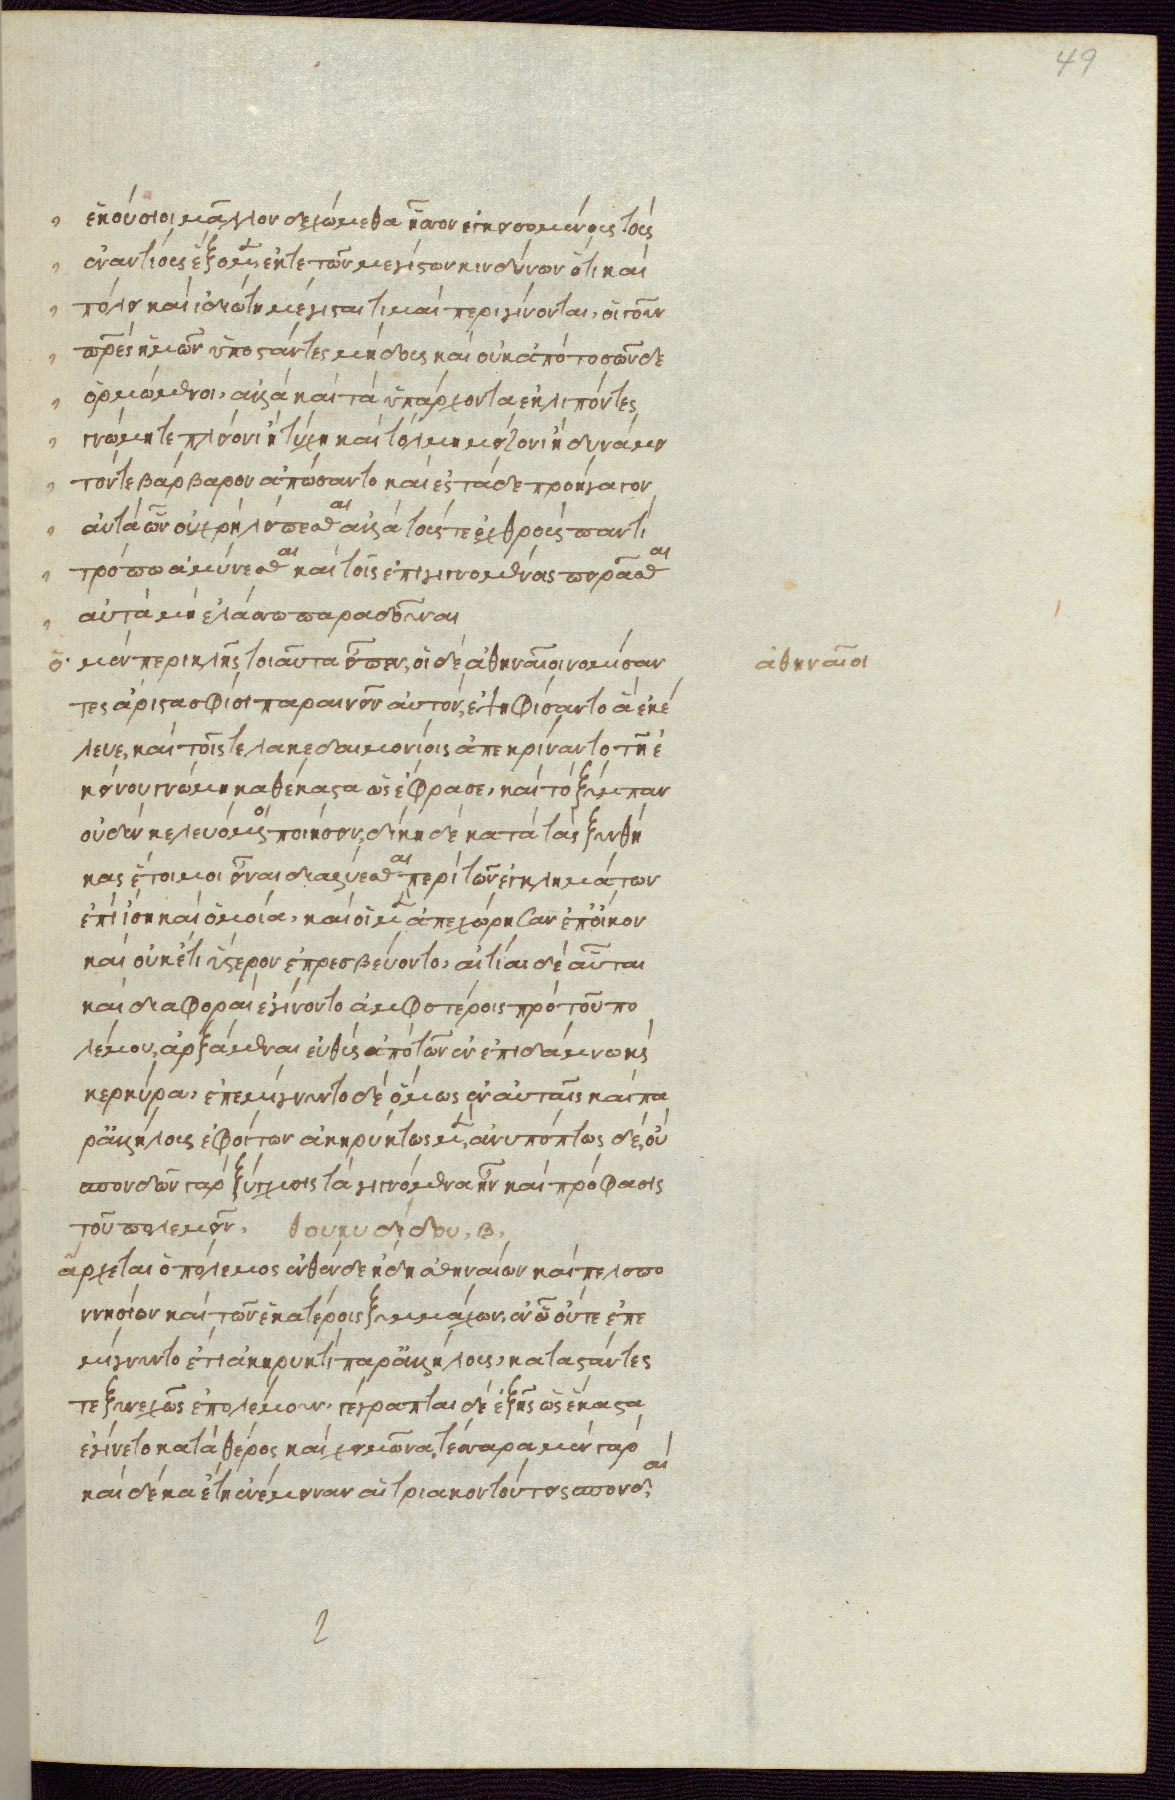 49
ἑκούσιοι μᾶλλον δεχώμεθα ἧσσον ἐγκεισομένους τοὺς
ἐναντίους ἕξομεν, ἔκ τε τῶν μεγίστων κινδύνων ὅτι καὶ
πόλει καὶ ἰδιώτῃ μέγισται τιμαὶ περιγίνονται, οἱ γοῦν
πατέρες ἡμῶν ὑποστάντες μήδους καὶ οὐκ ἀπὸ τοσῶνδε
ὁρμώμενοι, ἀλλὰ καὶ τὰ ὑπάρχοντα ἐκλιπόντες
γνώμῃ τε πλείονι ἢ τύχῃ καὶ τόλμῃ μείζονι ἢ δυνάμει
τόν τε βάρβαρον ἀπώσαντο καὶ ἐς τάδε προήγαγον
αὐτὰ ὧν οὐ χρὴ λείπεσθαι ἀλλὰ τούς τε ἐχθροὺς παντὶ
τρόπω ἀμύνεσθαι καὶ τοῖς ἐπιγιγνομένοις πειρᾶσθαι
αὐτὰ μὴ ἐλάσσω παραδοῦναι
ὁ μὲν περικλῆς τοιαῦτα εἶπεν, οἱ δὲ ἀθηναῖοι νομίσαν
ἀθηναῖοι
τες ἄριστα σφίσι παραινεῖν αὐτὸν, ἐψηφίσαντο ἃ ἐκέ
λευε, καὶ τοῖς τε λακεδαιμονίοις ἀπεκρίναντο τῇ ἐ
κείνου γνώμῃ καθέκαστα ὡς ἔφρασε, καὶ τὸ ξύμπαν
οὐδὲν κελευόμενοι ποιήσειν, δίκῃ δὲ κατὰ τὰς ξυνθή
κας ἕτοιμοι εἶναι διαλύεσθαι περὶ τῶν ἐγκλημάτων
ἐπὶ ἴσῃ καὶ ὁμοία, καὶ οἱ μὲν ἀπεχώρησαν ἐπ' οἴκου
καὶ οὐκέτι ὕστερον ἐπρεσβεύοντο, αἰτίαι δὲ αὗται
καὶ διαφοραὶ ἐγίνοντο ἀμφοτέροις πρὸ τοῦ πο
λέμου, ἀρξάμεναι εὐθὺς ἀπὸ τῶν ἐν ἐπιδάμνω καὶ
κερκύρα, ἐπεμίγνυντο δὲ ὅμως ἐν αὐταῖς καὶ πα
ρ' ἀλλήλους ἐφοίτων ἀκηρύκτως μὲν, ἀνυπόπτως δὲ, οὐ
σπονδῶν γὰρ ξύγχυσις τὰ γιγνόμενα ἦν καὶ πρόφασις
τοῦ πολεμεῖν. θουκυδίδου. β.
ἄρχεται ὁ πόλεμος ἐνθένδε ἤδη ἀθηναίων καὶ πελοπο
ννησίων καὶ τῶν ἑκατέροις ξυμμάχων, ἐν ᾧ οὔτε ἐπε
μίγνυντο ἔτι ἀκηρυκτὶ παρ' ἀλλήλους, καταστάντες
τε ξυνεχῶς ἐπολέμουν, γέγραπται δὲ ἑξῆς ὡς ἕκαστα
ἐγίνετο κατὰ θέρος καὶ χειμῶνα, τέσσαρα μὲν γὰρ
καὶ δέκα ἔτη ἐνέμειναν αἱ τριακοντούτεις σπονδαὶ